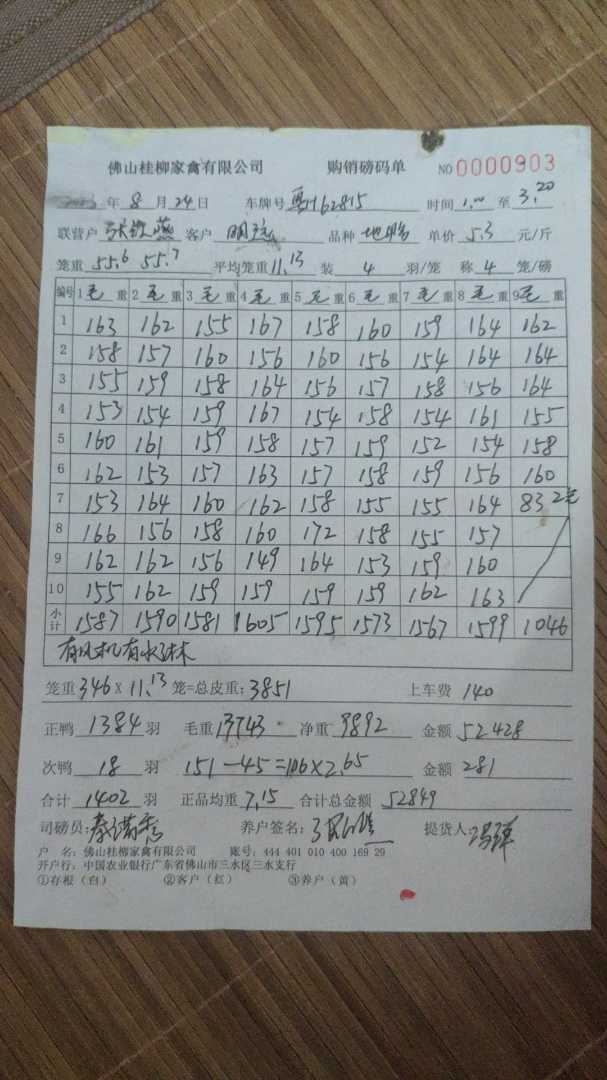 佛山桂柳家禽有限公司 购销磅码单 NO 0000903
年 8 月 24 日 车牌号 162815 时间 1.00 至 3.20
联营户 燕 客户 明 品种 地鸭 单价 5.3 元/斤
笼重 55.6 55.7 平均笼重 11.13 装 4 羽/笼 称 4 笼/磅
编号 1 毛 重 2 毛 重 3 毛 重 4 毛 重 5 毛 重 6 毛 重 7 毛 重 8 毛 重 9 毛 重
1 163 162 155 167 158 160 159 164 162
2 158 157 160 156 160 156 154 164 164
3 155 159 158 164 156 157 158 156 164
4 153 154 159 167 154 158 154 161 155
5 160 161 159 158 157 159 152 154 158
6 162 153 157 163 157 158 159 156 160
7 153 164 160 162 158 155 155 164 83 2毛
8 166 156 158 160 172 158 155 157
9 162 162 156 149 164 153 159 160
10 155 162 159 159 159 159 162 163
小计 1587 1590 1581 1605 1595 1573 1567 1599 1046
有风机有水淋
笼重 346 X 11.13 笼=总皮重: 3851 上车费 140
正鸭 1384 羽 毛重 13743 净重 9892 金额 52428
次鸭 18 羽 151-45=106×2.65 金额 281
合计 1402 羽 正品均重 7.15 合计总金额 52849
司磅员: 养户签名: 提货人:
户 名: 佛山桂柳家禽有限公司 账号: 444 401 010 400 169 29
开户行: 中国农业银行广东省佛山市三水区三水支行
①存根(白) ②客户(红) ③养户(黄)